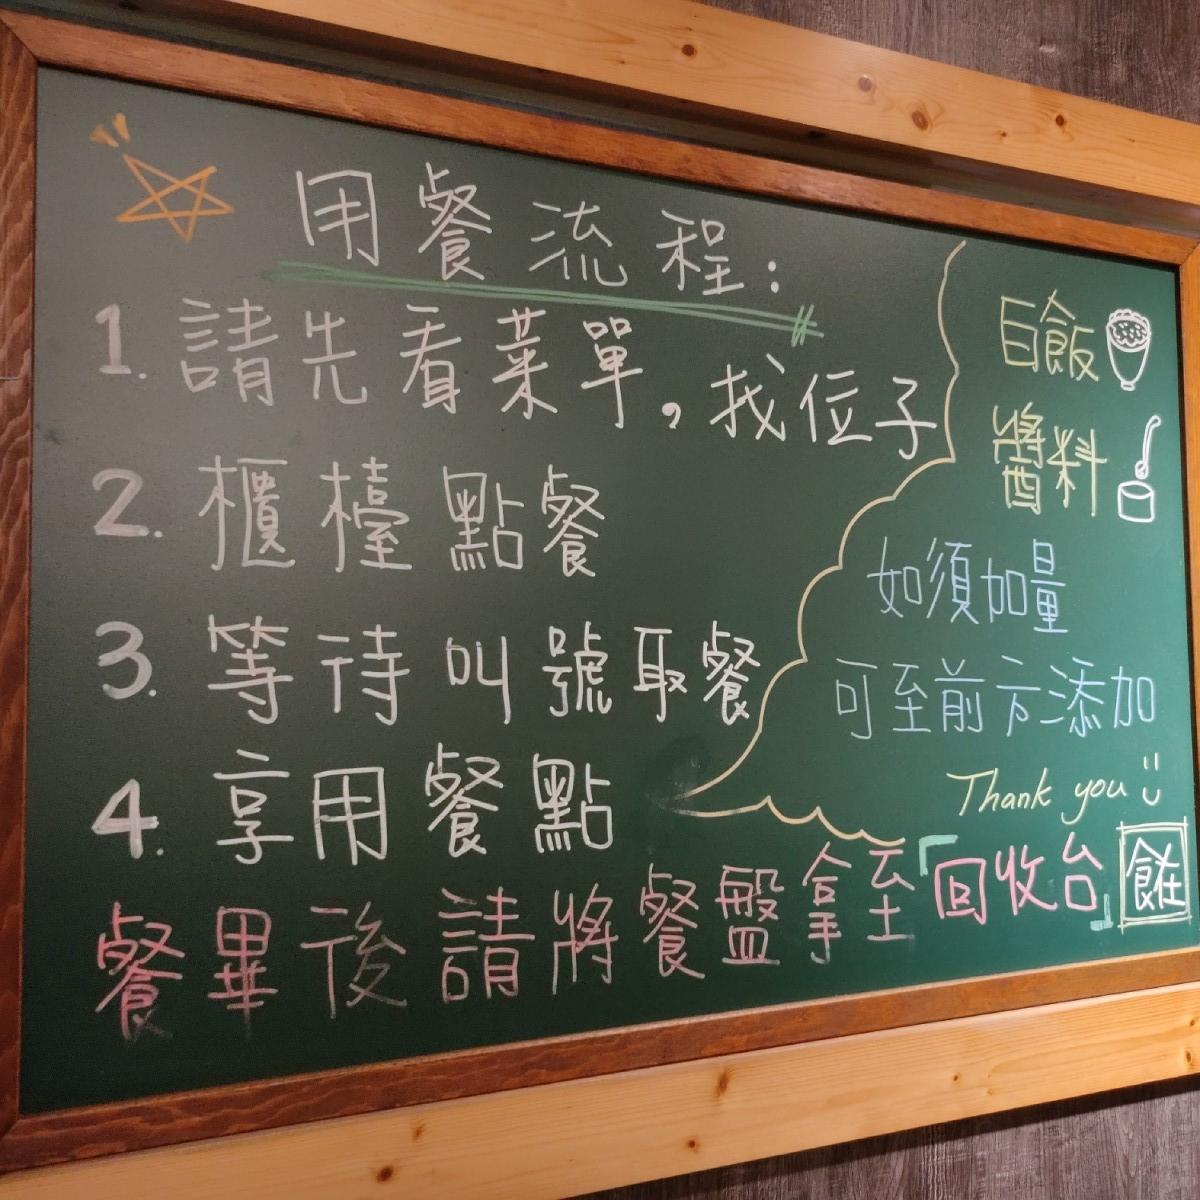 用餐流程:
1. 請先看菜單,找位子
2. 櫃檯點餐
3. 等待叫號取餐
4. 享用餐點
餐畢後請將餐盤拿至「回收台」
白飯
醬料
如須加量
可至前方添加
Thank you